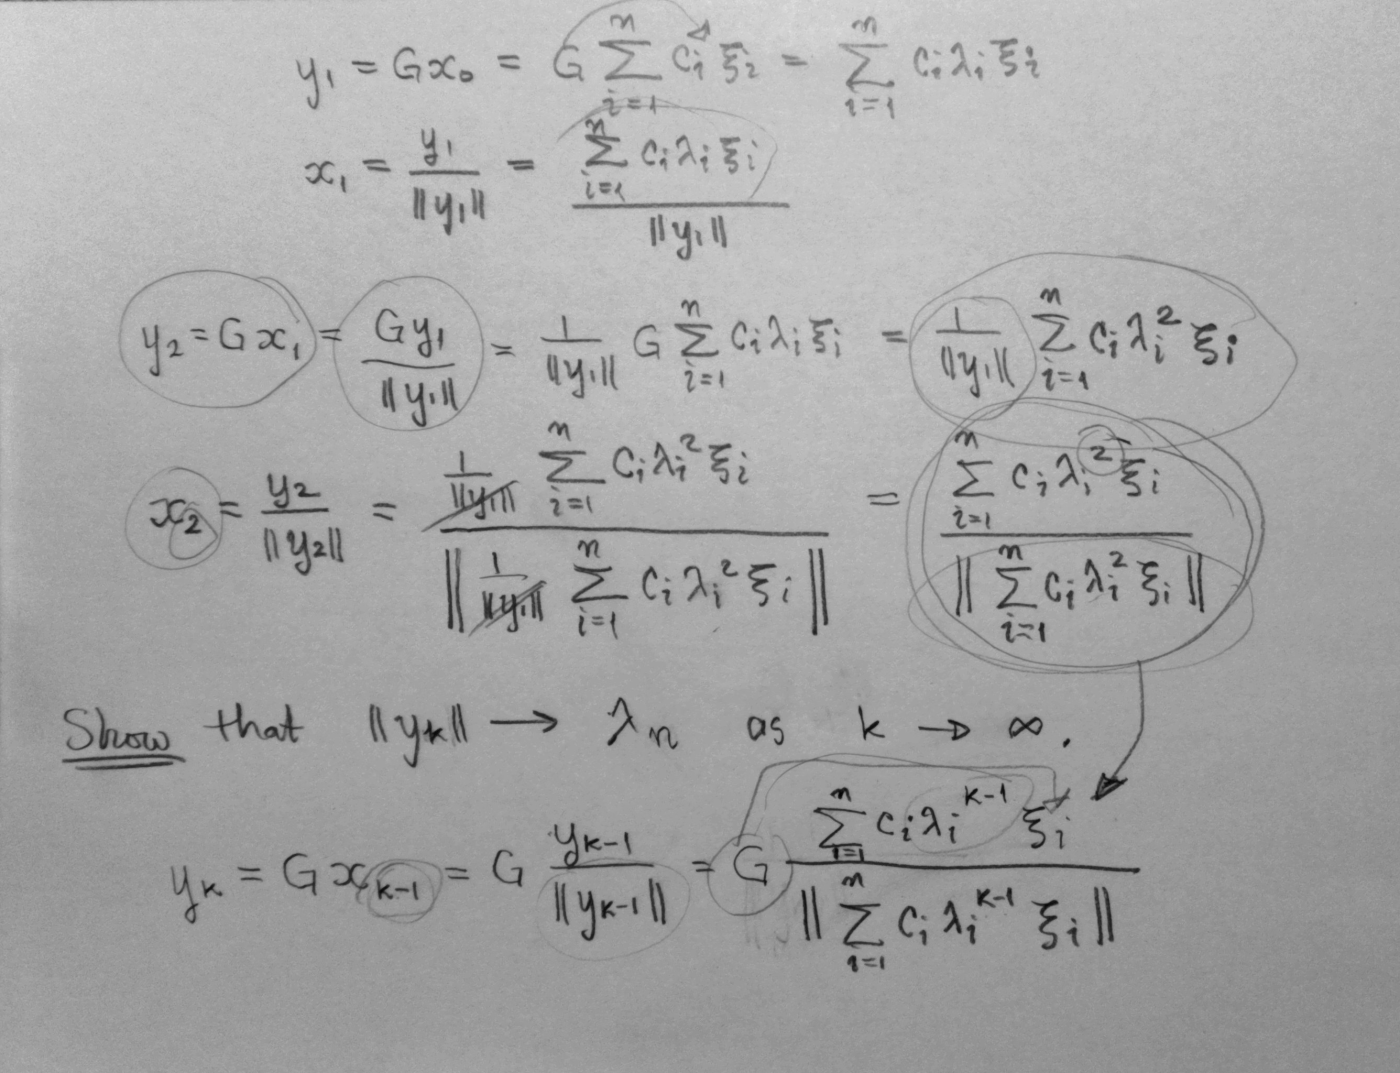 y₁ = Gx₀ = G ∑_{i=1}^{n} cᵢ ξᵢ = ∑_{i=1}^{n} cᵢ λᵢ ξᵢ
x₁ = y₁ / ‖y₁‖ = ∑_{i=1}^{n} cᵢ λᵢ ξᵢ / ‖y₁‖
y₂ = Gx₁ = Gy₁ / ‖y₁‖ = 1/‖y₁‖ G ∑_{i=1}^{n} cᵢ λᵢ ξᵢ = 1/‖y₁‖ ∑_{i=1}^{n} cᵢ λᵢ² ξᵢ
x₂ = y₂ / ‖y₂‖ = 1/‖y₁‖ ∑_{i=1}^{n} cᵢ λᵢ² ξᵢ / ‖ 1/‖y₁‖ ∑_{i=1}^{n} cᵢ λᵢ² ξᵢ ‖ = ∑_{i=1}^{n} cᵢ λᵢ² ξᵢ / ‖ ∑_{i=1}^{n} cᵢ λᵢ² ξᵢ ‖
Show that ‖yₖ‖ → λₙ as k → ∞.
yₖ = Gxₖ₋₁ = G yₖ₋₁ / ‖yₖ₋₁‖ = G ∑_{i=1}^{n} cᵢ λᵢ^{k-1} ξᵢ / ‖ ∑_{i=1}^{n} cᵢ λᵢ^{k-1} ξᵢ ‖